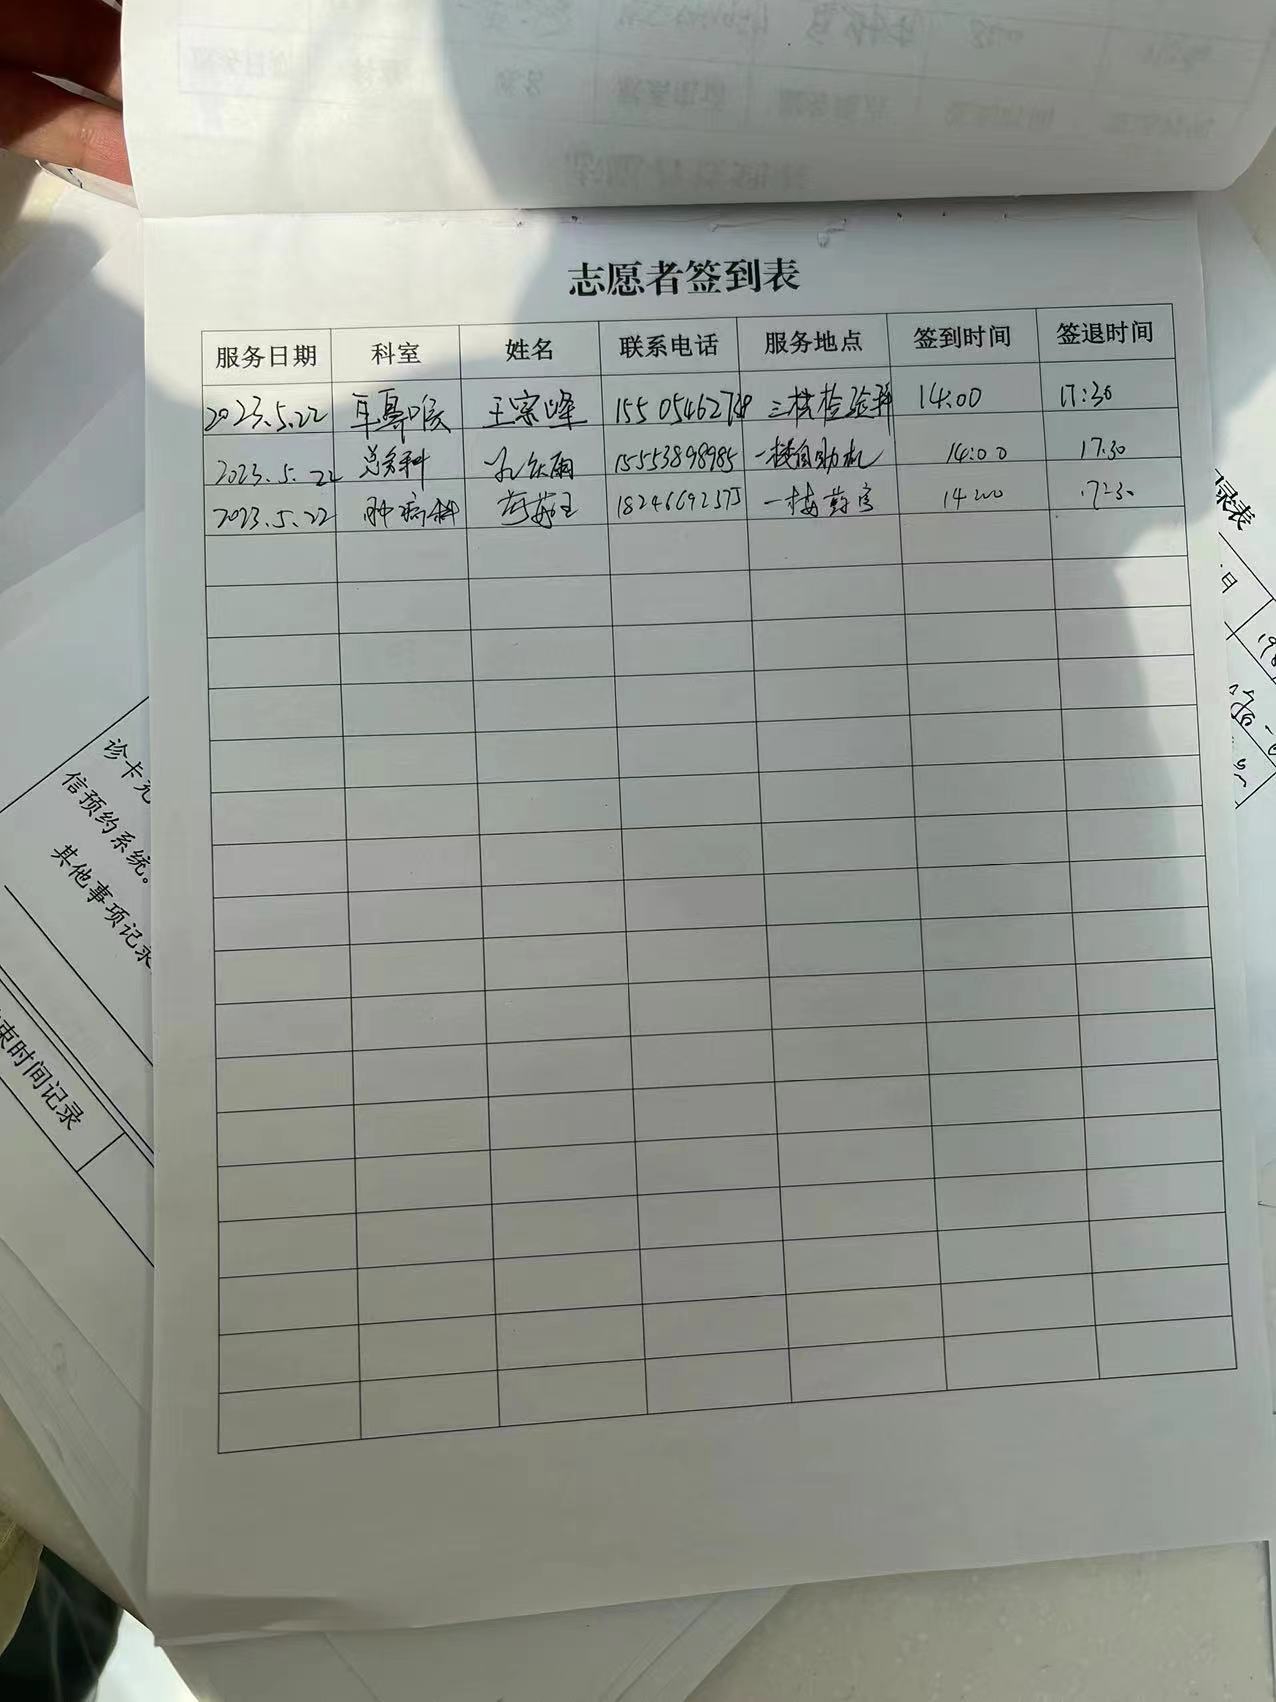 志愿者签到表
服务日期 科室 姓名 联系电话 服务地点 签到时间 签退时间
2023.5.22 耳鼻喉 王宗峰 155054627 三楼检验科 14:00 17:30
2023.5.22 总务科 孔庆雨 15553898985 一楼自助机 14:00 17:30
2023.5.22 肿病科 1824669237 一楼药房 14:00 17:30
诊卡充
信预约系统。
其他事项记录
束时间记录
录表
日